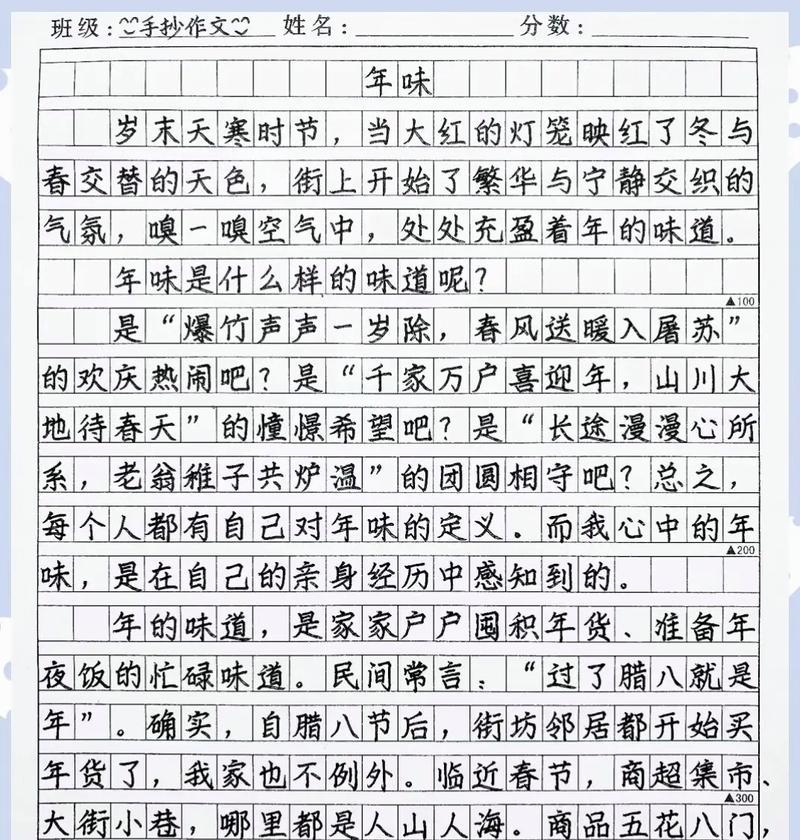 班级:手抄作文 姓名: 分数:
年味
岁末天寒时节，当大红的灯笼映红了冬与
春交替的天色，街上开始了繁华与宁静交织的
气氛，嗅一嗅空气中，处处充盈着年的味道。
年味是什么样的味道呢？
▲100
是“爆竹声声一岁除，春风送暖入屠苏”
的欢庆热闹吧？是“千家万户喜迎年，山川大
地待春天”的憧憬希望吧？是“长途漫漫心所
系，老翁稚子共炉温”的团圆相守吧？总之，
每个人都有自己对年味的定义。而我心中的年
▲200
味，是在自己的亲身经历中感知到的。
年的味道，是家家户户囤积年货、准备年
夜饭的忙碌味道。民间常言：“过了腊八就是
年”。确实，自腊八节后，街坊邻居都开始买
年货了，我家也不例外。临近春节，商超集市、
▲300
大街小巷，哪里都是人山人海。商品五花八门，